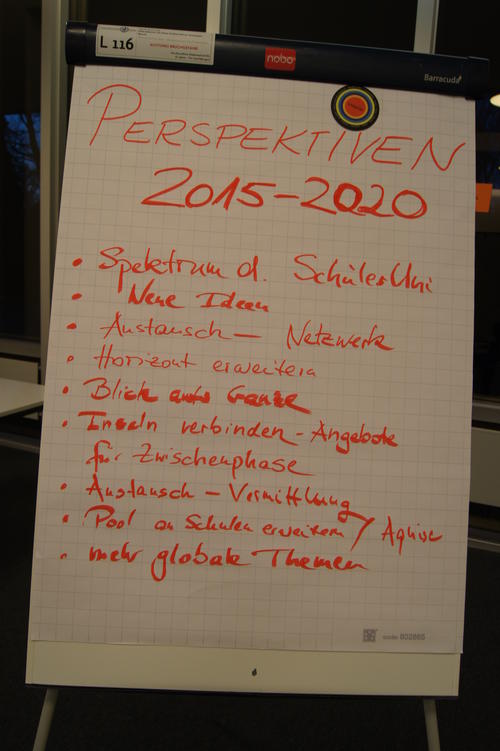 L 116
ACHTUNG BRUCHGEFAHR
nobo
Barracuda
PERSPEKTIVEN
2015-2020
• Spektrum d. SchülerUni
• Neue Ideen
• Austausch — Netzwerk
• Horizont erweitern
• Blick aufs Ganze
• Inseln verbinden - Angebote
für Zwischenphase
• Austausch - Vermittlung
• Pool an Schulen erweitern / Aquise
• mehr globale Themen
code: 802865